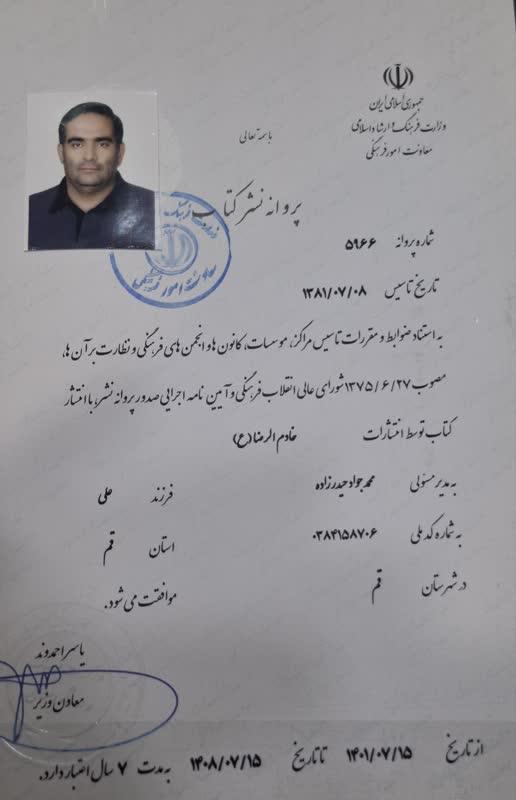 جمهوری اسلامی ایران
وزارت فرهنگ و ارشاد اسلامی
معاونت امور فرهنگی
باسمه تعالی
پروانه نشر کتاب
معاونت امور فرهنگی
شماره پروانه ۵۹۶۶
تاریخ تاسیس ۱۳۸۱/۰۷/۰۸
به استناد ضوابط و مقررات تاسیس مراکز، موسسات، کانون ها و انجمن های فرهنگی و نظارت بر آن ها،
مصوب ۱۳۷۵/۶/۲۷ شورای عالی انقلاب فرهنگی و آیین نامه اجرایی صدور پروانه نشر، با انتشار
کتاب توسط انتشارات خادم الرضا(ع)
به مدیر مسئولی محمدجواد حیدرزاده فرزند علی
به شماره کد ملی ۰۳۸۴۱۵۸۷۰۶ استان قم
در شهرستان قم موافقت می شود.
یاسر احمدوند
معاون وزیر
از تاریخ ۱۴۰۱/۰۷/۱۵ تا تاریخ ۱۴۰۸/۰۷/۱۵ به مدت ۷ سال اعتبار دارد.